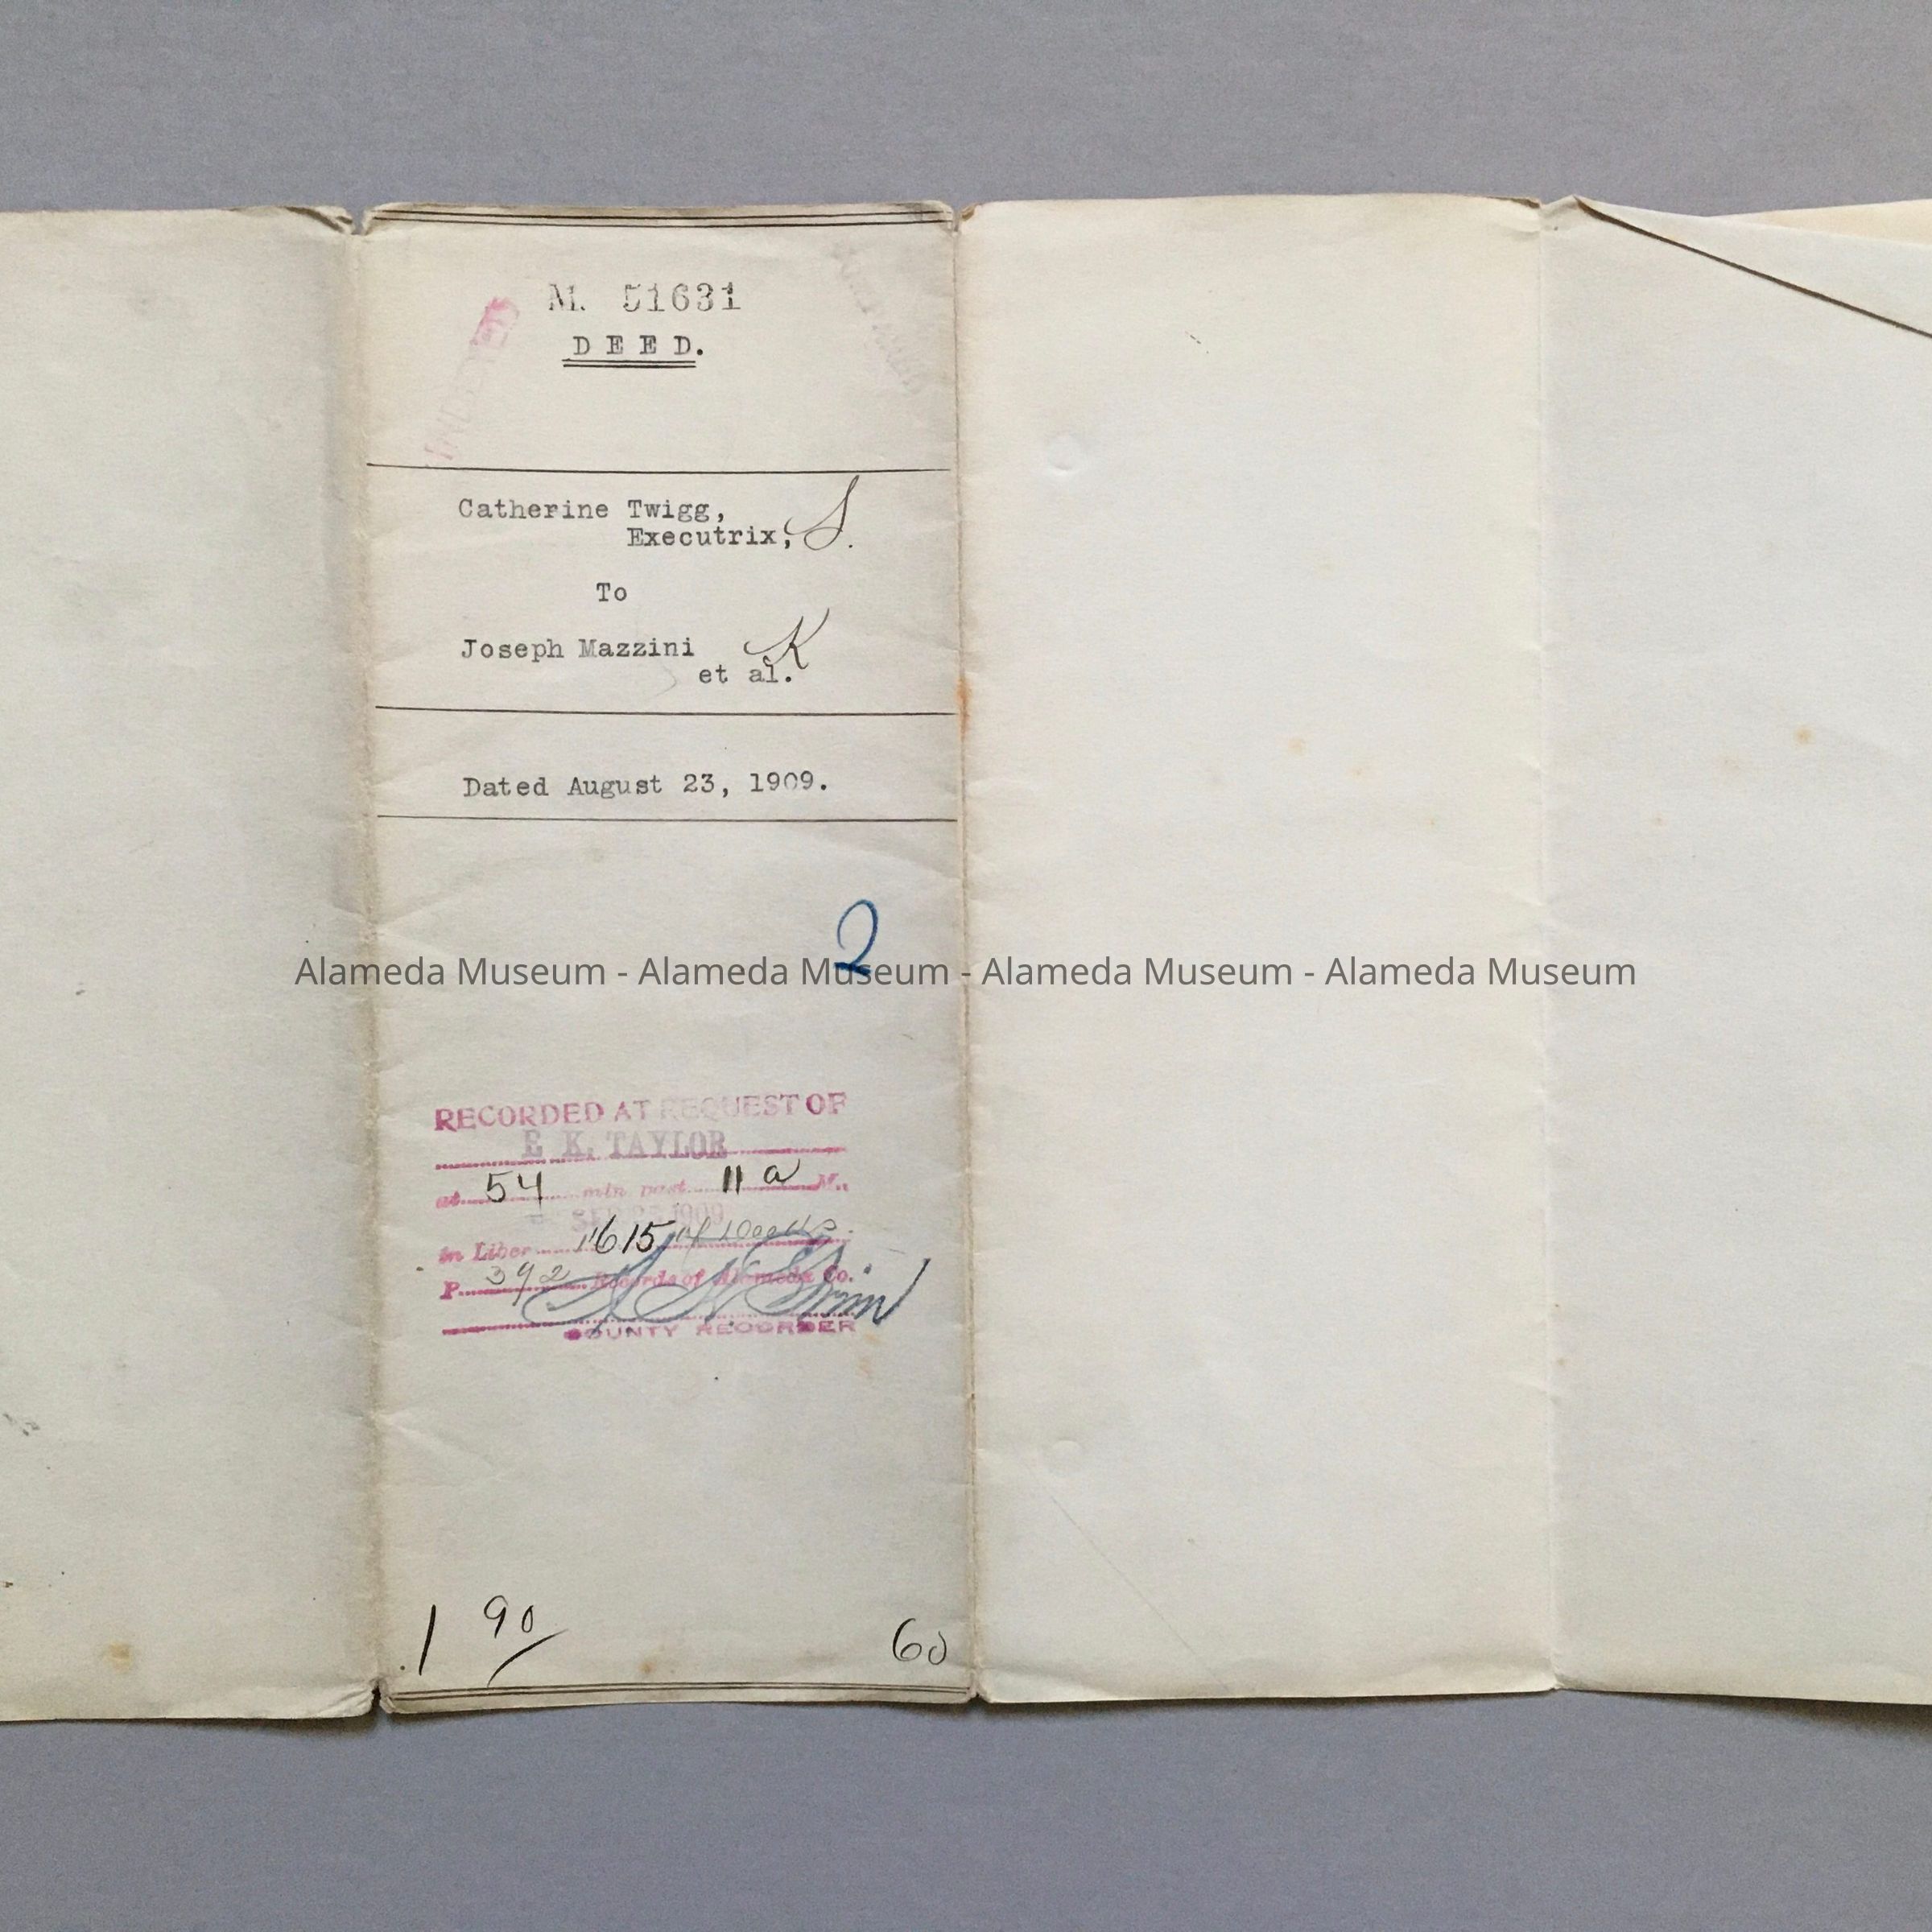 M. 51631
DEED.
INDEXED
Catherine Twigg,
Executrix, S.
To
Joseph Mazzini K
et al.
Dated August 23, 1909.
2
Alameda Museum - Alameda Museum - Alameda Museum - Alameda Museum
RECORDED AT REQUEST OF
E. K. TAYLOR
at 54 min past 11 a M.,
1909
in Liber 1615 of Deeds
P. 392 Records of Alameda Co.
COUNTY RECORDER
1 90
60